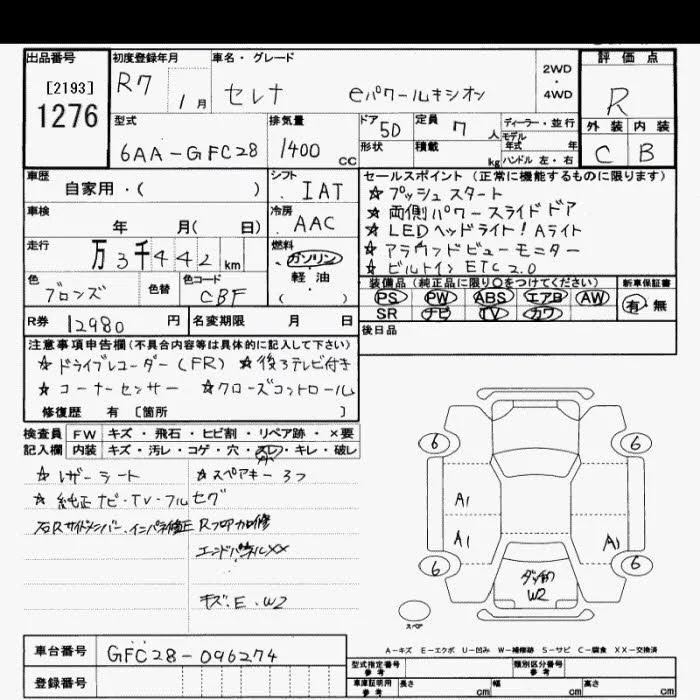 出品番号
[2193]
1276
初度登録年月
R7
1 月
車名・グレード
セレナ eパワールキシオン
2WD
・
4WD
評価点
R
外装 内装
C B
型式
6AA-GFC28
排気量
1400 CC
ドア 5D
形状
定員 7 人
積載 kg
ディーラー・並行
モデル
年式 年
ハンドル 左・右
車歴
自家用・( )
シフト
IAT
車検
年 月( 日)
冷房
AAC
走行
万3千442 km
燃料
ガソリン
軽油
( )
色
ブロンズ
色替
色コード
CBF
R券 12980 円
名変期限 月 日
セールスポイント (正常に機能するものに限ります)
☆ プッシュスタート
☆ 両側パワースライドドア
☆ LEDヘッドライト!Aライト
☆ アラウンドビューモニター
☆ ビルトイン ETC 2.0
装備品 (純正品に限り○をつけてください)
PS PW ABS エアB AW
SR ナビ TV カワ
新車保証書
有・無
後日品
注意事項申告欄(不具合内容等は具体的に記入して下さい)
☆ ドライブレコーダー(FR) ☆ 後ろテレビ付き
☆ コーナーセンサー ☆ クローズコントロール
修復歴 有 [箇所 ]
検査員 FW キズ・飛石・ヒビ割・リペア跡・×要
記入欄 内装 キズ・汚レ・コゲ・穴・スレ・キレ・破レ
☆ レザーシート ☆ スペアキー 3つ
☆ 純正ナビ・TV・フルセグ
右Rサイドメンバー、インパネ修正 Rフロア加修
エンドパネルXX
キズ・E・W2
6 6
A1
A1 A1
6 6
W2
スペア
A-キズ E-エクボ U-凹み W-補修跡 S-サビ C-腐食 XX-交換済
車台番号 GFC28-096274
登録番号
型式指定番号
参考
類別区分番号
参考
車庫証明用
参考
長さ cm 幅 cm 高さ cm